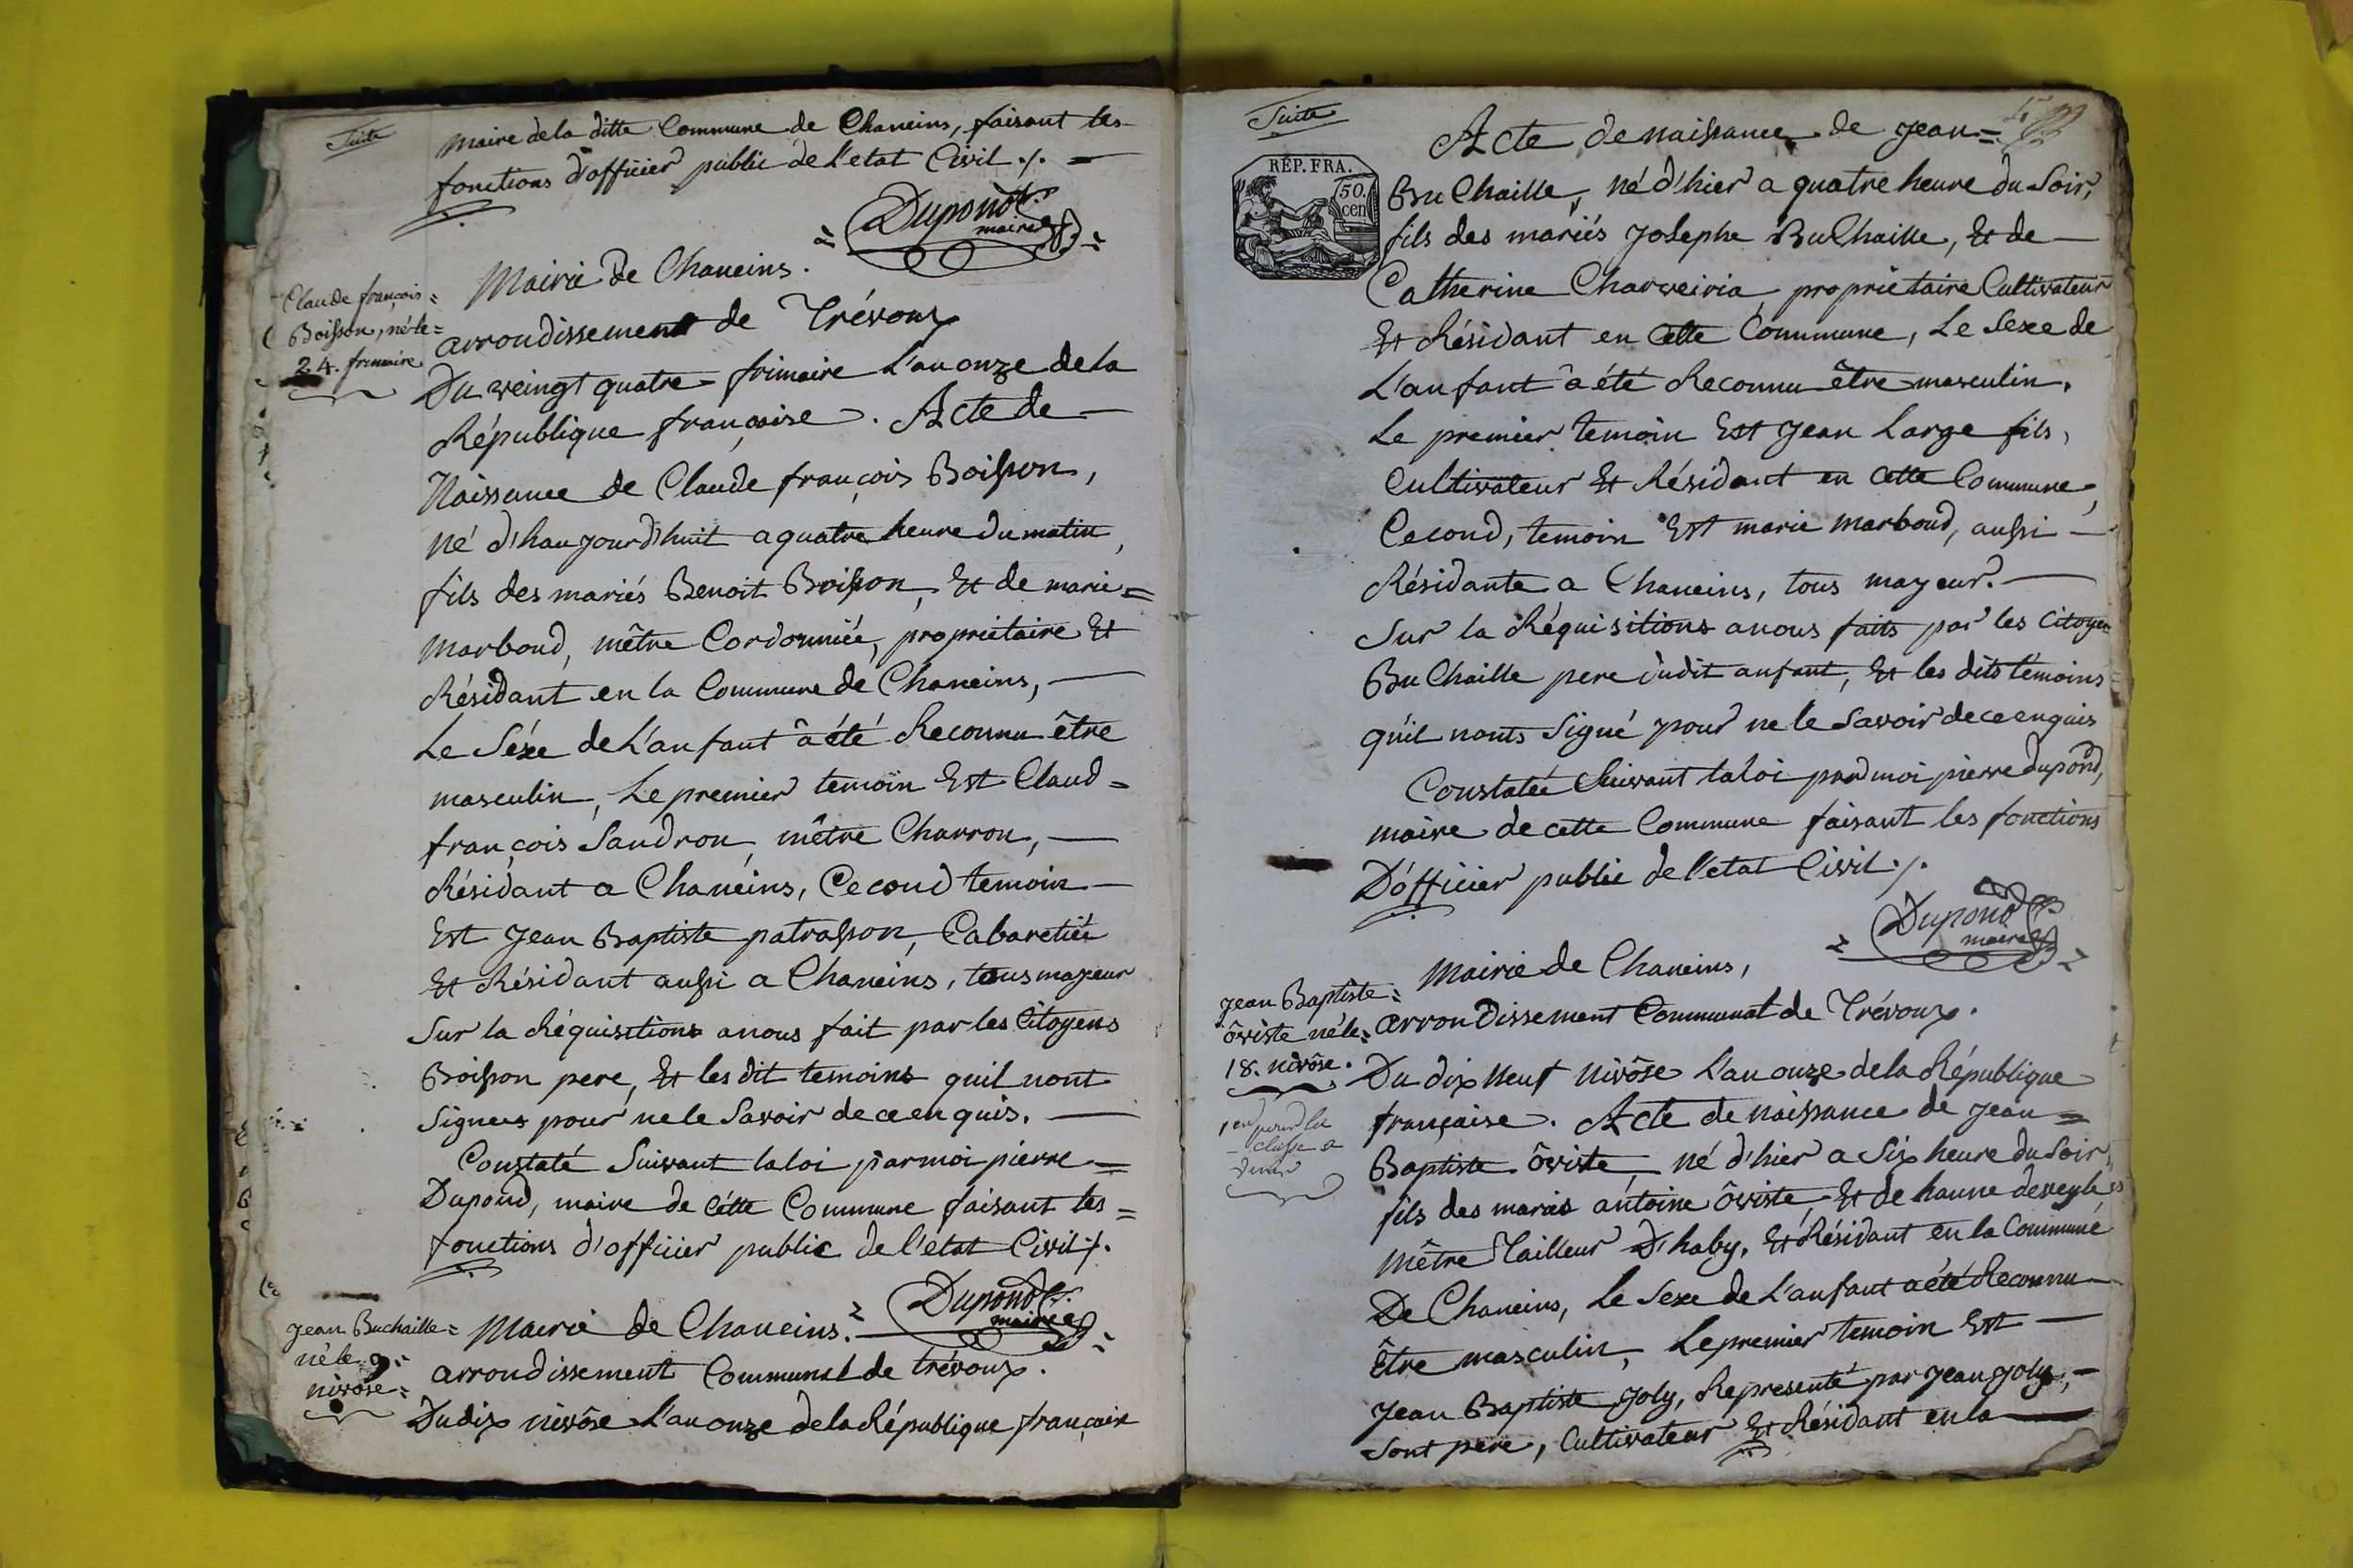 Suite
maire de la ditte Commune de Chaneins, faisant les
fonctions d'officier public de l'etat Civil ./. =
Dupond
maire
Mairie de Chaneins.
Claude françois =
Boisson, né le =
24. frimaire
arrondissement de Trévoux
Du veingt quatre frimaire L'an onze de la
République française. Acte de —
Naissance de Claude françois Boisson,
né d'haujourd'huit a quatre heure du matin,
fils des mariés Benoit Boisson, Et de marie =
Marboud, mêtre Cordonniée, propriétaire Et
Résidant en la Commune de Chaneins, —
Le Séxe de L'anfant â été Reconnu être
masculin, Le premier temoin Est Claud =
françois Sandron, mêtre Charron, —
Résidant a Chaneins, Cecond temoin —
Est Jean Baptiste patrasson, Cabaretiée
Et Résidant aussi a Chaneins, tous mayeur
Sur la Réquisitions a nous fait par les Citoyens
Boisson pere, Et les dit temoins quil nont
Signees pour ne le Savoir de ce en quis. —
Constaté Suivant la loi par moi pierre =
Dupond, maire de cétte Commune faisant les =
fonctions d'officier public de l'état Civil ./.
Dupond
maire
Jean Buchaille =
né le 9 =
nivôse =
Mairie de Chaneins.
arrondissement Communal de trévoux.
Du dix nivôse L'an onze de la République française
Suite
Acte de naissance de Jean =
RÉP. FRA.
50
cen
Buchaille, né d'hier a quatre heure du Soir,
fils des mariés Josephe Buchaille, Et de —
Catherine Charveiria, propriétaire Cultivateur
Et Résidant en cette Commune, Le Sexe de
L'anfant â été Reconnu être masculin.
Le premier temoin Est Jean Large fils,
Cultivateur Et Résidant en cette Commune,
Cecond, temoin Est marie marboud, aussi —
Résidante a Chaneins, tous mayeur. —
Sur la Réquisitions a nous faits par les Citoyen
Buchaille pere dudit anfant, Et les dits temoins
qu'il nonts Signé pour ne le Savoir de ce enquis
Constatée Suivant la loi par moi pierre dupond,
maire de cette Commune faisant les fonctions
D'officier public de l'etat Civil ./.
Dupond
maire
Mairie de Chaneins,
Jean Baptiste =
ôviste né le =
18. nivôse.
arrondissement Communal de Trévoux.
Du dix neuf nivôse L'an onze de la République
française. Acte de naissance de Jean =
Baptiste ôviste né d'hier a Six heure du Soir,
fils des mariés antoine ôviste, Et de hanne
mêtre Tailleur D'haby, Et Résidant en la Commune
De Chaneins, Le Sexe de L'anfant a été Reconnu
Être masculin, Le premier temoin Est —
Jean Baptiste Joly, Representé par Jean Joly, —
Sont pere, Cultivateur Et Résidant en la —